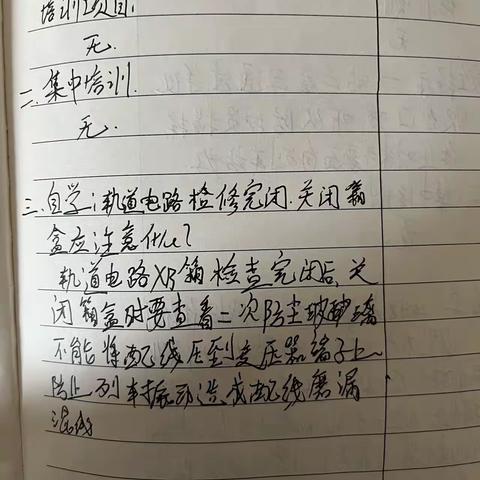 培训项目:
无.
二.集中培训.
无.
三.自学:轨道电路检修完闭.关闭箱
盒应注意什么?
轨道电路XB箱检查完闭后,关
闭箱盒时要查看二次防尘玻璃
不能将配线压到变压器端子上
防止列车振动造成配线磨漏
混线